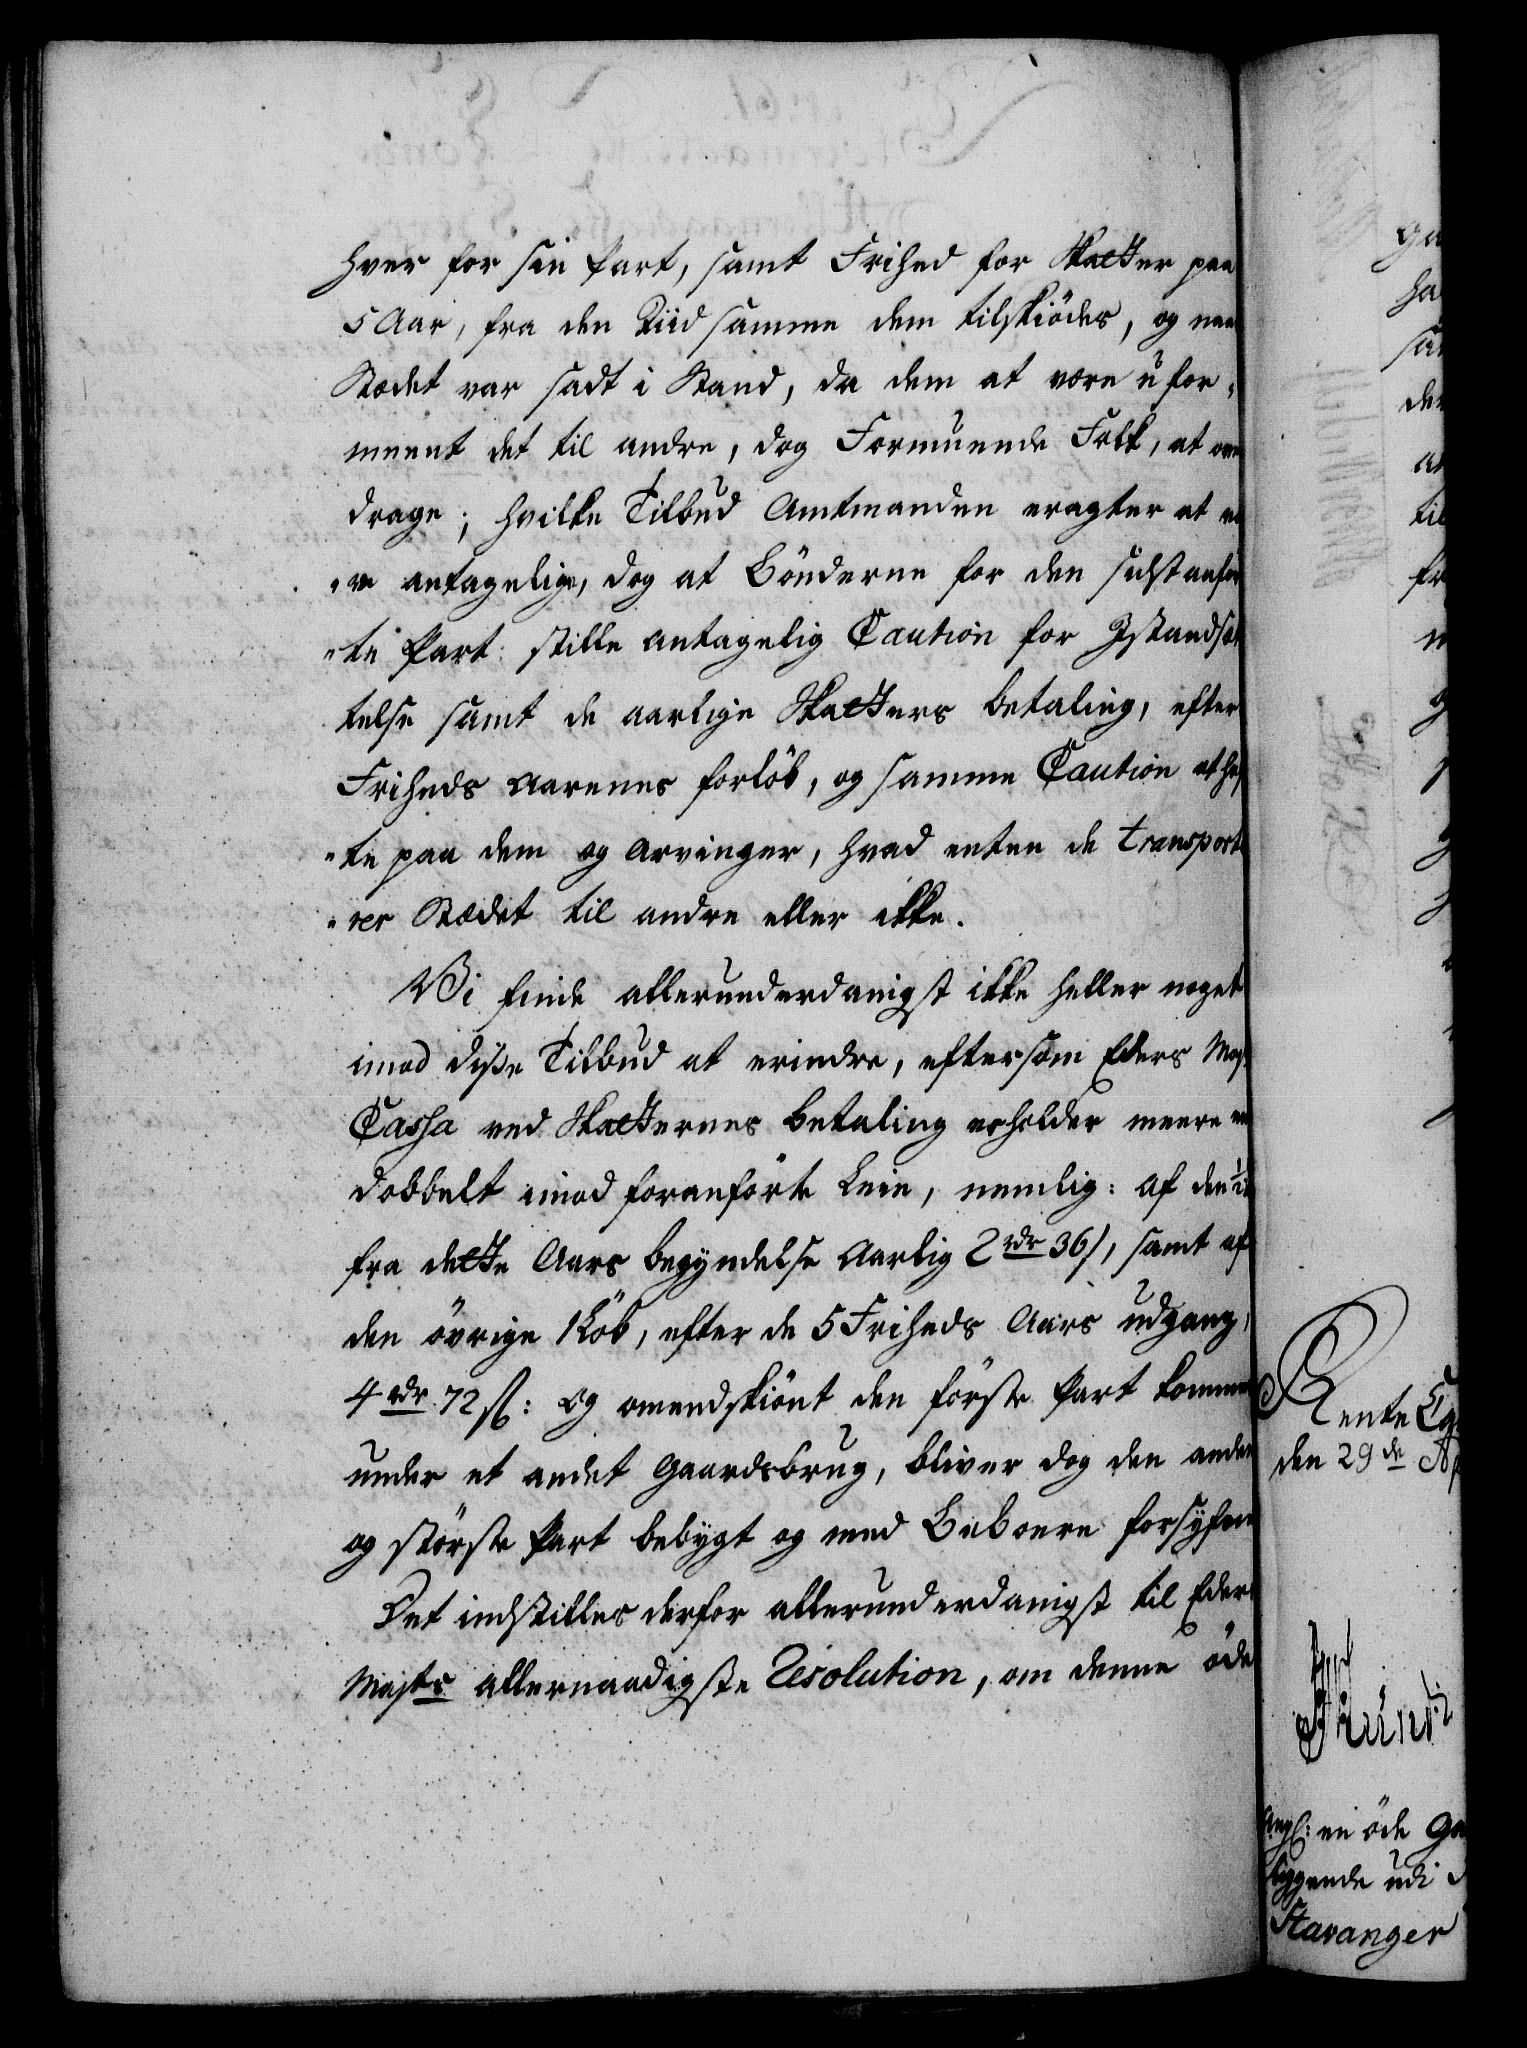 hver for sin Part, samt Frihed for Skatter paa
5 Aar, fra den Tiid samme dem tilskiödes, og naar
Stædet var sadt i Stand, da dem at være ufor¬
meent det til andre, dog Formuende Folk, at over
drage; hvilke Tilbud Amtmanden eragter at væ
"re antagelige, dog at Bönderne for den sidstanför
"te Part stille antagelig Caution for Istandsæt
telse samt de aarlige Skatters betaling, efter
Friheds Aarenes forlöb, og samme Caution at hef
"te paa dem og Arvinger, hvad enten de transport
"rer Stædet til andre eller ikke.
Vi finde allerunderdanigst ikke heller noget
imod disse Tilbud at erindre, eftersom Eders Maj
Cassa ved Skatternes betaling erholder meere en
dobbelt imod foranförte Leie, nemlig: af den ½
fra dette Aars begyndelse Aarlig 2 rdr 36 s, samt af
den övrige 1 Löb, efter de 5 Friheds Aars udgang,
4 rdr 72 s: og omendskiönt den förste Part kommer
under et andet Gaardsbrug, bliver dog den anden
og störste Part bebygt og med Beboere forsynet
Det indstilles derfor allerunderdanigst til Eders
Majts allernaadigste Resolution, om denne öde
Rente
den 29de
en öde
liggende udi
Stavanger